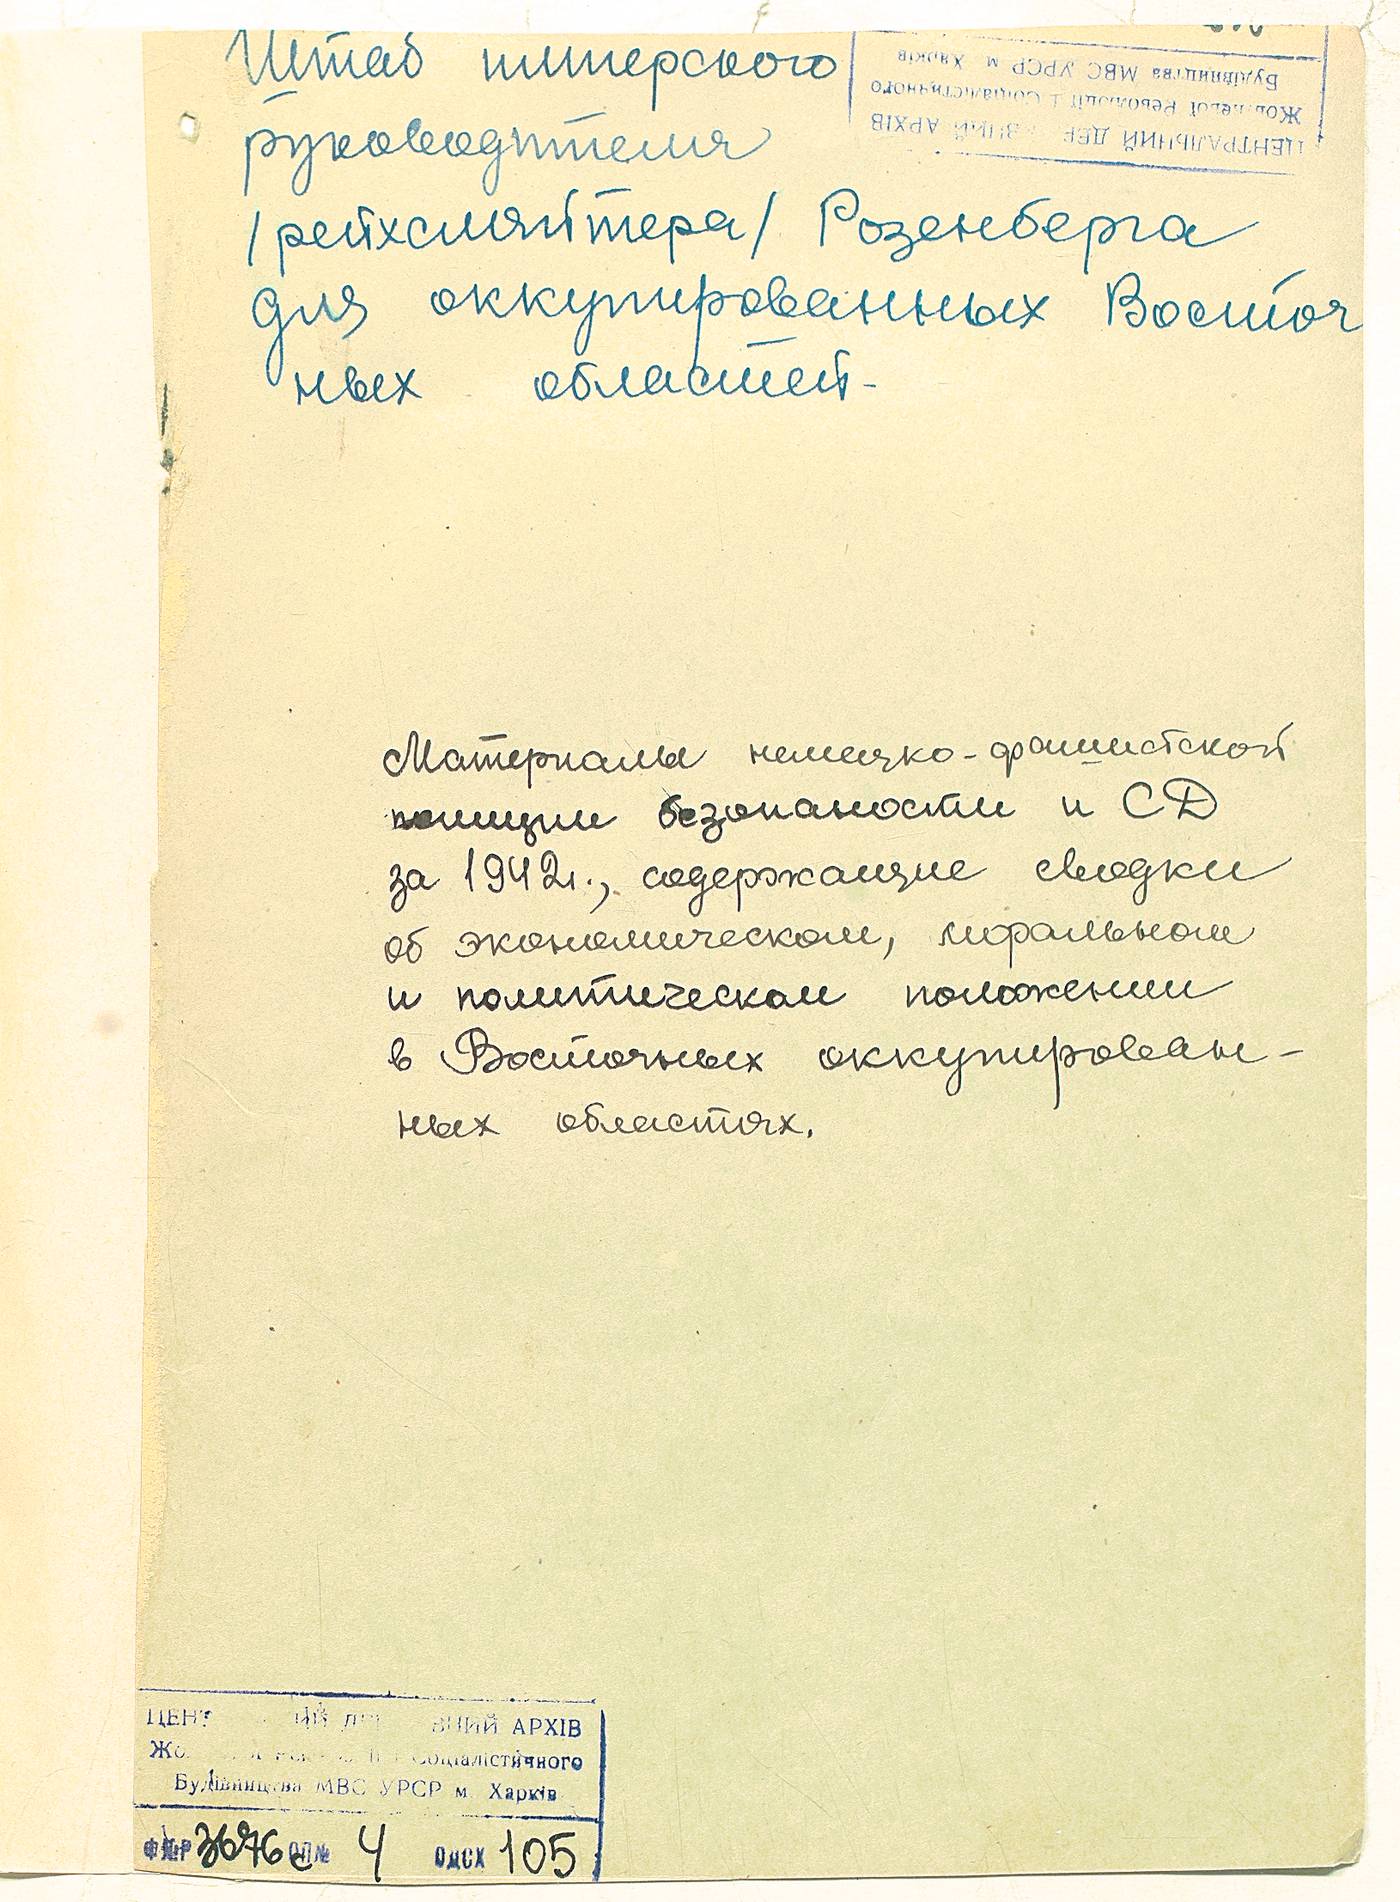 Штаб имперского
руководителя
/рейхсляйтера/ Розенберга
для оккупированных Восточ
ных областей-
ЦЕНТРАЛЬНИЙ ДЕР ВНИЙ АРХІВ
Жовтневої Революції і Соціалістичного
Будівництва МВС УРСР м Харків
Материалы немецко-фашистской
полиции безопаности и СД
за 1942г., содержащие сводки
об экономическом, моральном
и политическом положении
в Восточных оккупирован-
ных областях.
ЦЕНТ ИЙ ДЕ ВНИЙ АРХІВ
Соціалістичного
Будівництва МВС УРСР м. Харків
Ф№Р 3676с ОП№ 4 ОДСХ 105